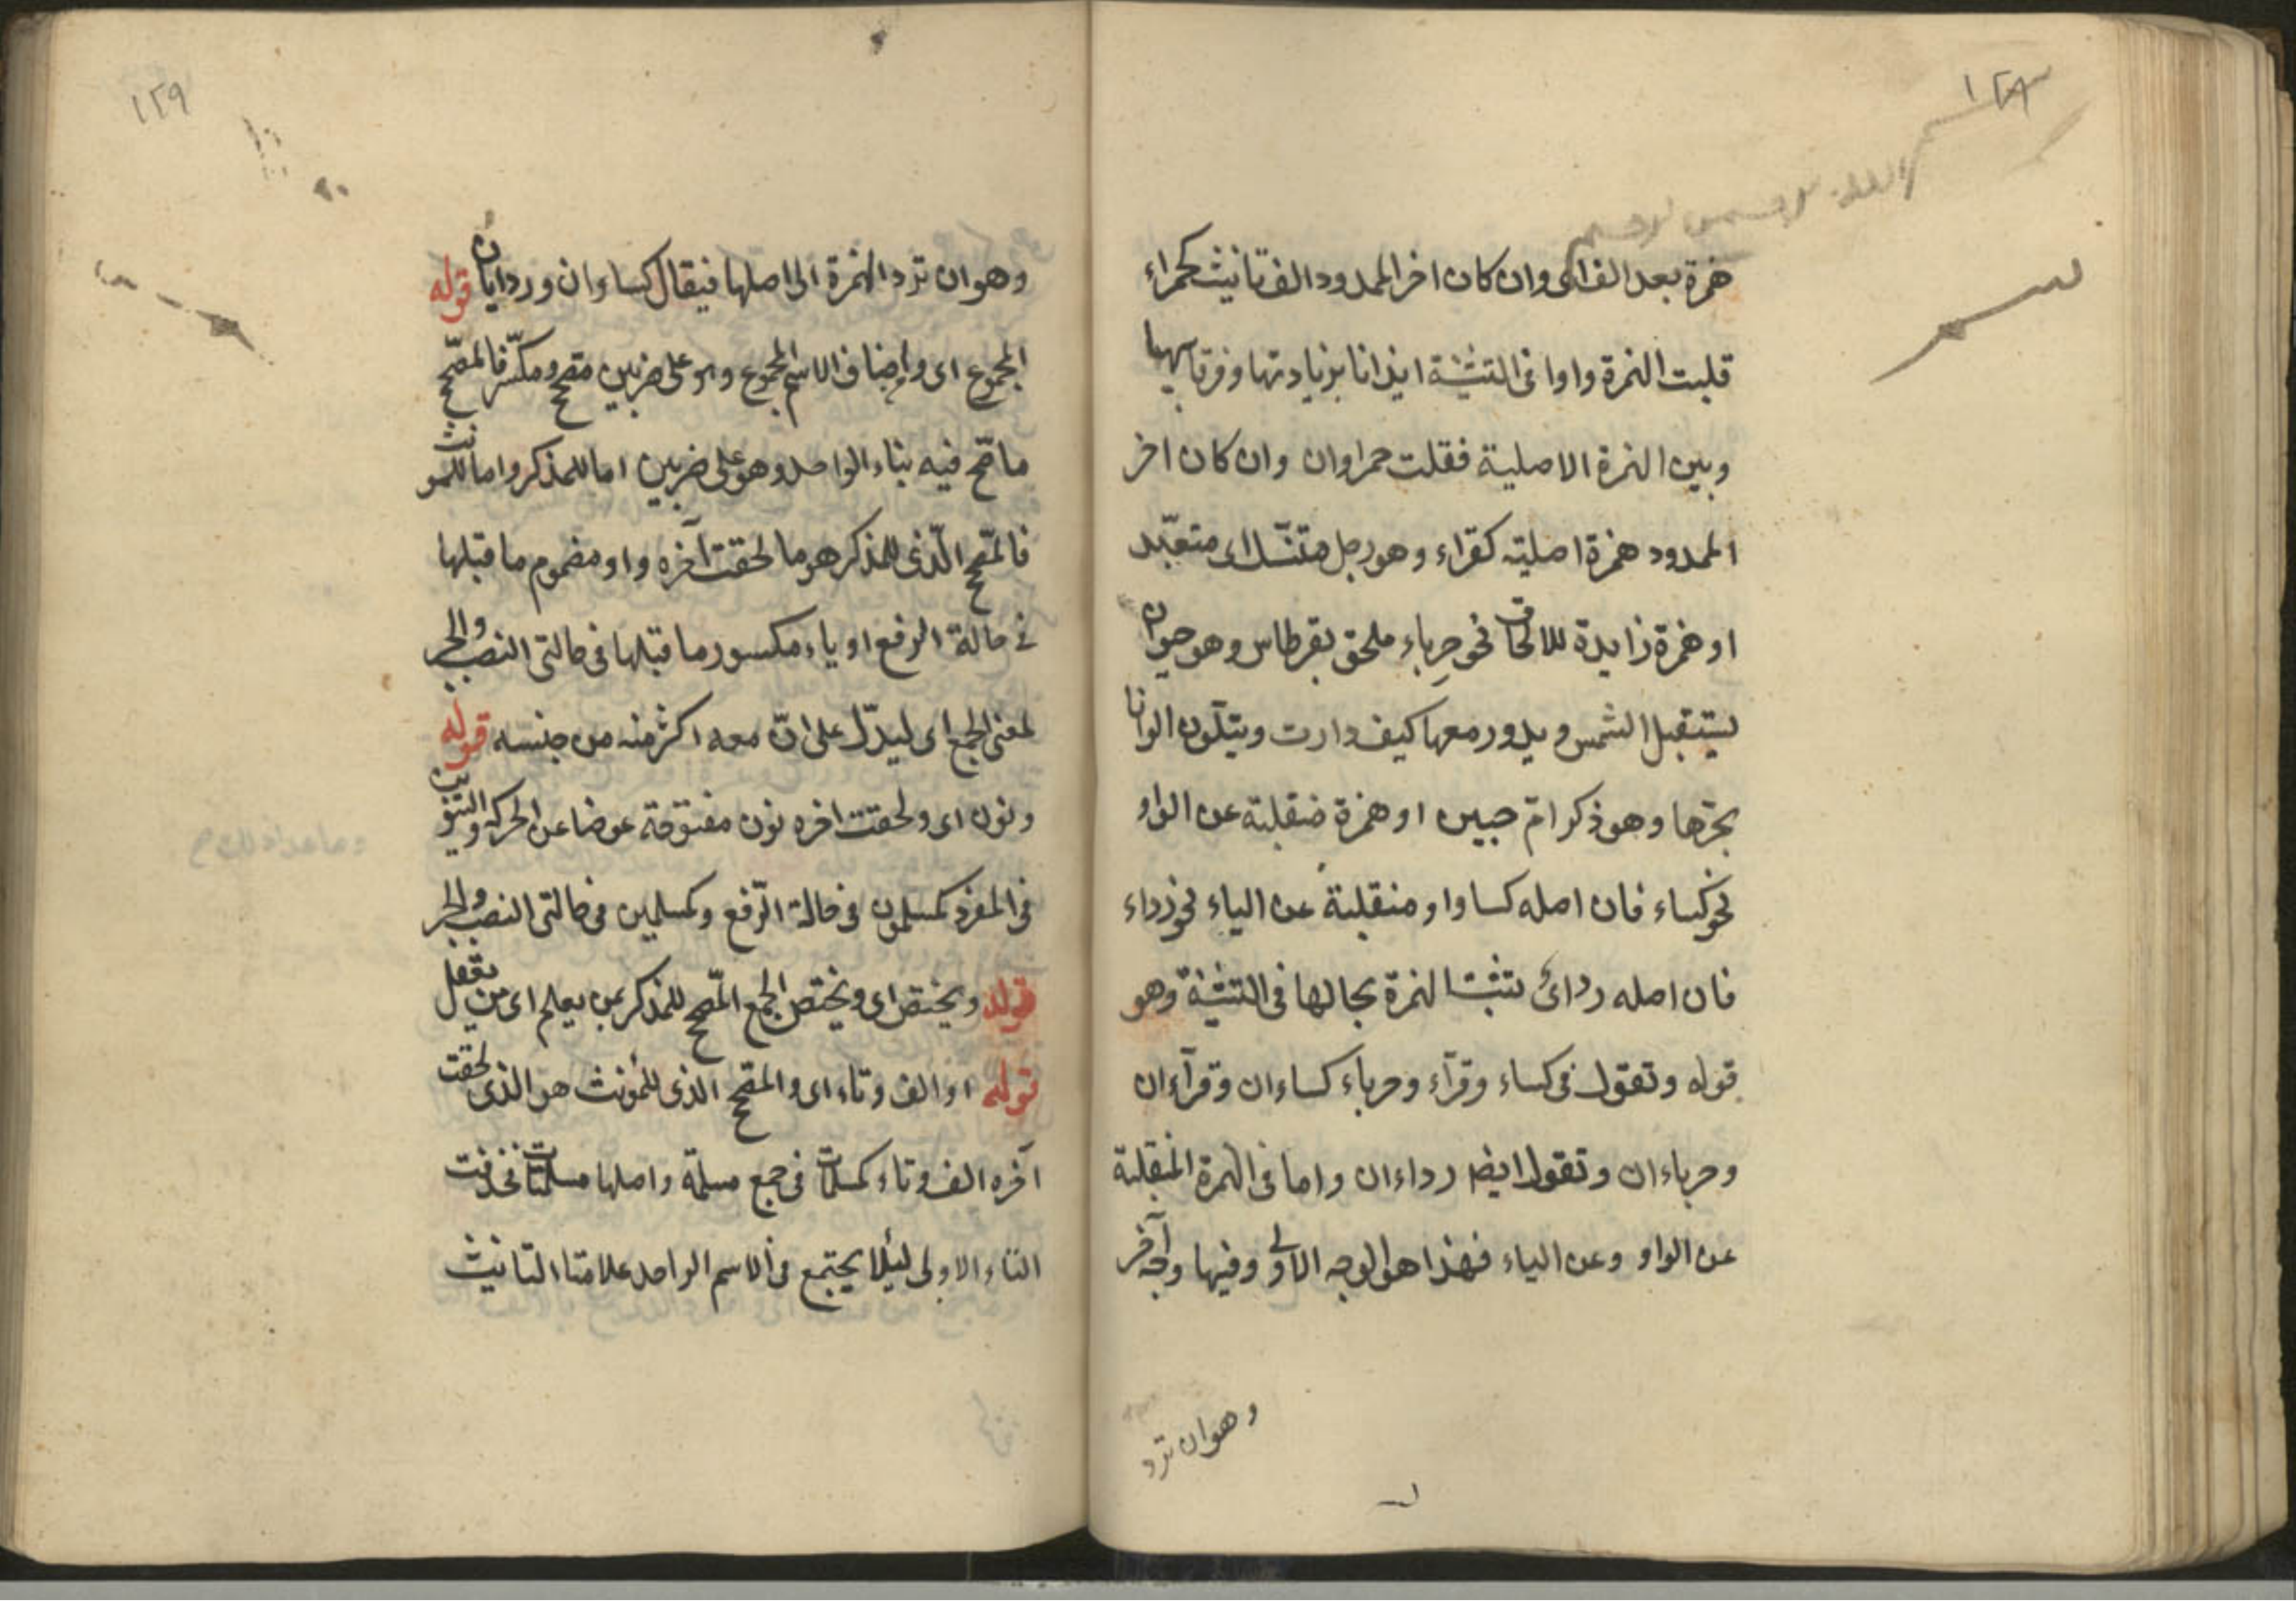 ١٢٨
همزة بعد الف اى وان كان اخر الممدود الف تانيث كحمراء
قلبت الهمزة واوا فى التثنية ايذانا بزيادتها وفرقا بينها
وبين الهمزة الاصلية فقلت حمراوان وان كان اخر
الممدود همزة اصلية كقراء وهو رجل متنسّك اى متعبّد
او همزة زايدة للالحاق نحو حرباء ملحق بقرطاس وهو حيوان
يستقبل الشمس ويدور معها كيف دارت ويتلّون الوانا
بحرّها وهو ذكر امّ حبين او همزة منقلبة عن الواو
نحو كساء فان اصله كساو او منقلبة عن الياء نحو رداء
فان اصله رداىٌ تثبت الهمزة بحالها فى التثنية وهو
قوله وتقول فى كساء وقرّآء وحرباء كساءان وقرآءان
وحرباءان وتقول ايضا رداءان واما فى الهمزة المنقلبة
عن الواو وعن الياء فهذا هو الوجه الاولى وفيها وجه آخر
وهو ان ترد
١٢٩
وهو ان ترد الهمزة الى اصلها فيقال كساوان وردايان قوله
المجموع اى واصناف الاسم المجموع وهو على ضربين مصحح ومكسّر فالمصحّح
ما صحّ فيه بناء الواحد وهو على ضربين اما للمذكر واما للمونث
فالمصّحح الّذى للمذكر هو ما لحقت آخره واو مضموم ما قبلها
فى حالة الرفع او ياء مكسور ما قبلها فى حالتى النصب والجر
لمعنى الجمع اى ليدّل على انّ معه اكثر منه من جنسه قوله
ونون اى ولحقت اخره نون مفتوحة عوضا عن الحركة والتنوين
فى المفرد كمسلمون فى حالة الرّفع وكمسلمين فى حالتى النصب والجر
قوله ويختص اى ويختص الجمع المصّحح للمذكر بمن يعلم اى من يعقل
قوله او الف وتاء اى والمصحح الذى للمؤنث هو الذى لحقت
آخره الف وتاء كمسلمات فى جمع مسلمة واصلها مسلمتات فحذفت
التاء الاولى لئلا يجتمع فى الاسم الواحد علامتا التانيث